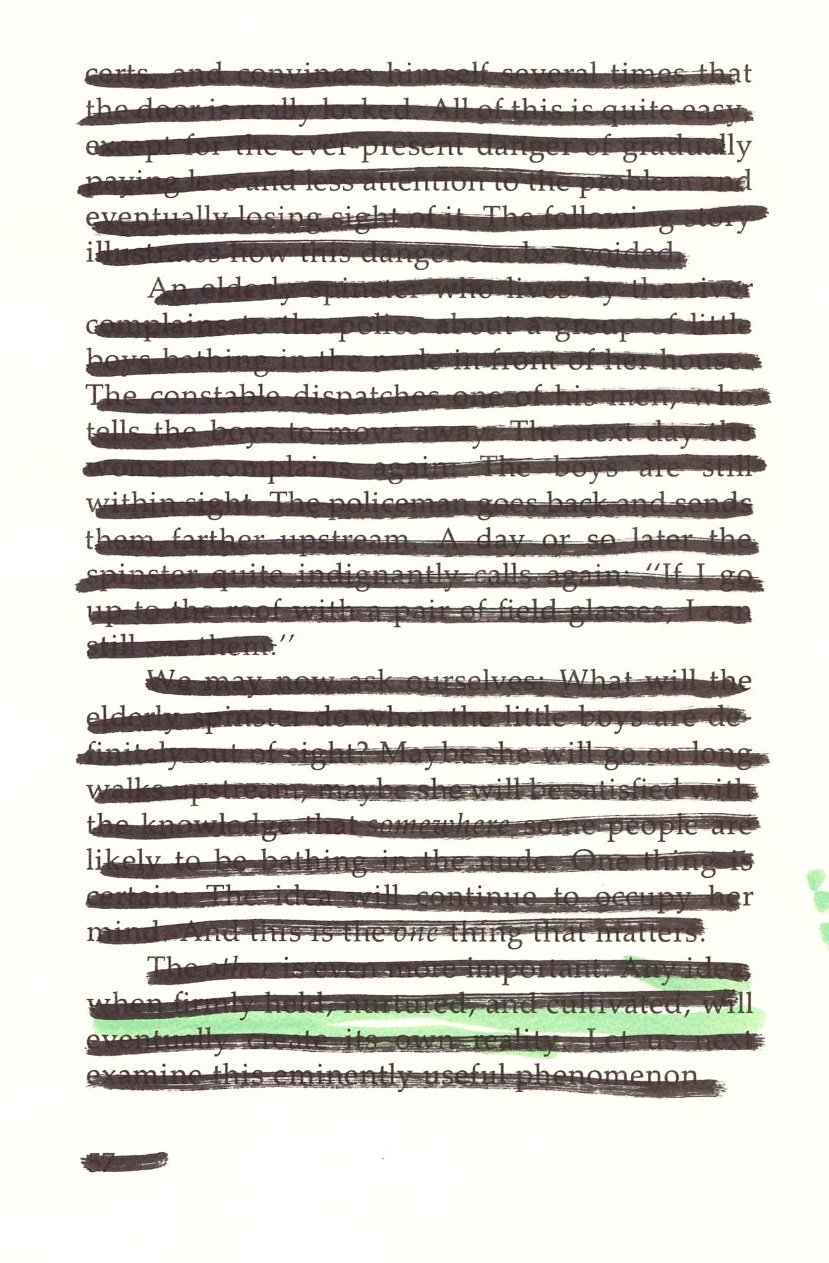 certs, and convinces himself several times that
the door is really locked. All of this is quite easy,
except for the ever-present danger of gradually
paying less and less attention to the problem and
eventually losing sight of it. The following story
illustrates how this danger can be avoided.
An elderly spinster who lives by the river
complains to the police about a group of little
boys bathing in the nude in front of her house.
The constable dispatches one of his men, who
tells the boys to move away. The next day the
woman complains again. The boys are still
within sight. The policeman goes back and sends
them farther upstream. A day or so later the
spinster quite indignantly calls again: “If I go
up to the roof with a pair of field glasses, I can
still see them.”
We may now ask ourselves: What will the
elderly spinster do when the little boys are de-
finitely out of sight? Maybe she will go on long
walks upstream, maybe she will be satisfied with
the knowledge that somewhere some people are
likely to be bathing in the nude. One thing is
certain: The idea will continue to occupy her
mind. And this is the one thing that matters.
The other is even more important: Any idea,
when firmly held, nurtured, and cultivated, will
eventually create its own reality. Let us next
examine this eminently useful phenomenon.
57